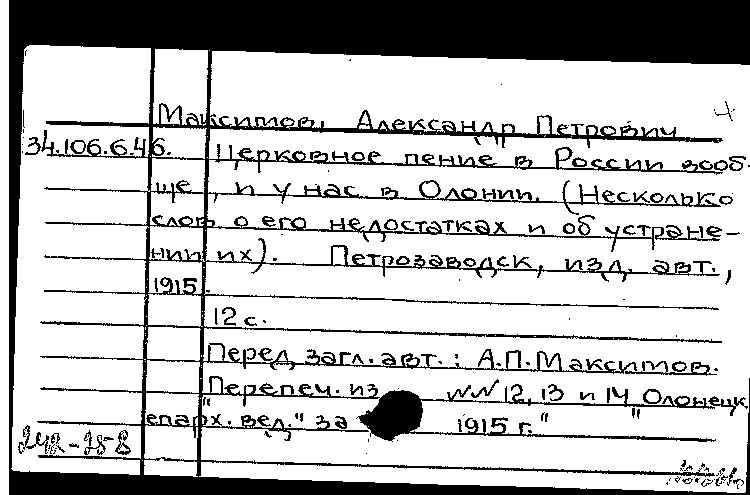 Максимов, Александр Петрович
34.106.6.46. Церковное пение в России вооб-
ще, и у нас в Олонии. (Несколько
слов о его недостатках и об устране-
нии их). Петрозаводск, изд. авт.,
1915.
12 с.
Перед загл. авт.: А.П.Максимов.
"Перепеч. из №№ 12, 13 и 14 "Олонецк.
епарх. вед." за 1915 г."
242-758